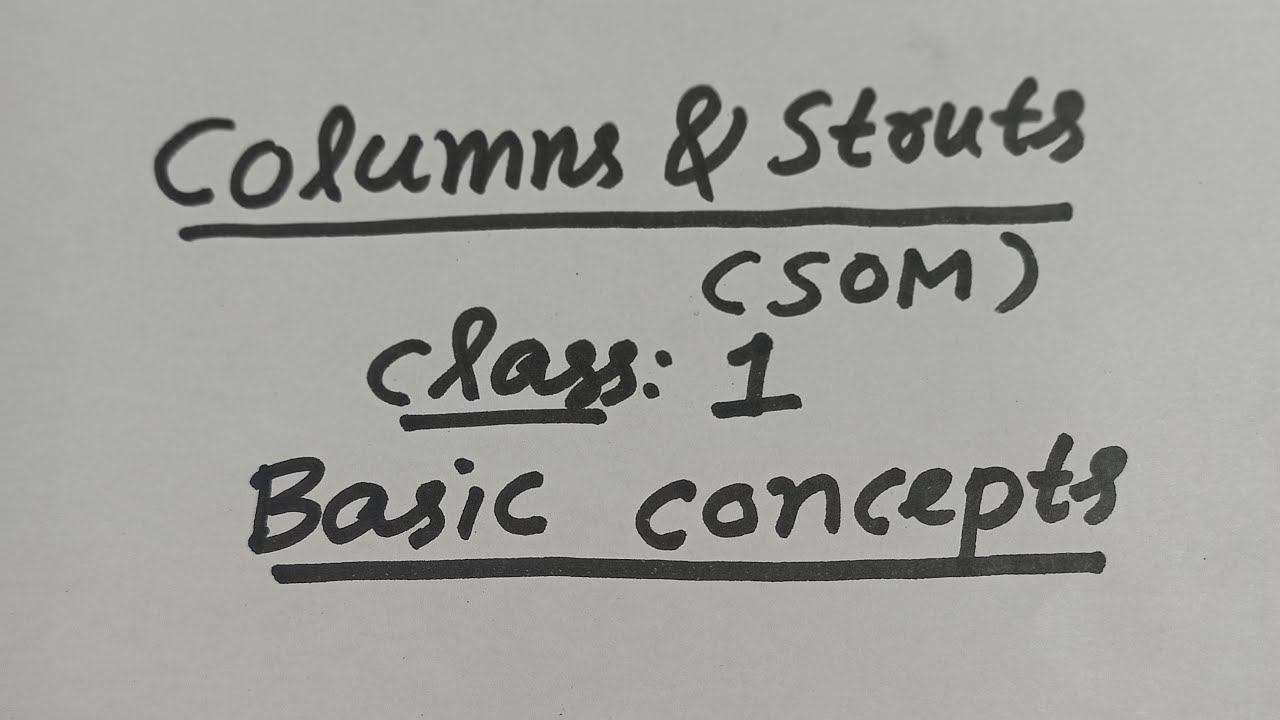 Columns & Struts
(SOM)
Class: 1
Basic concepts